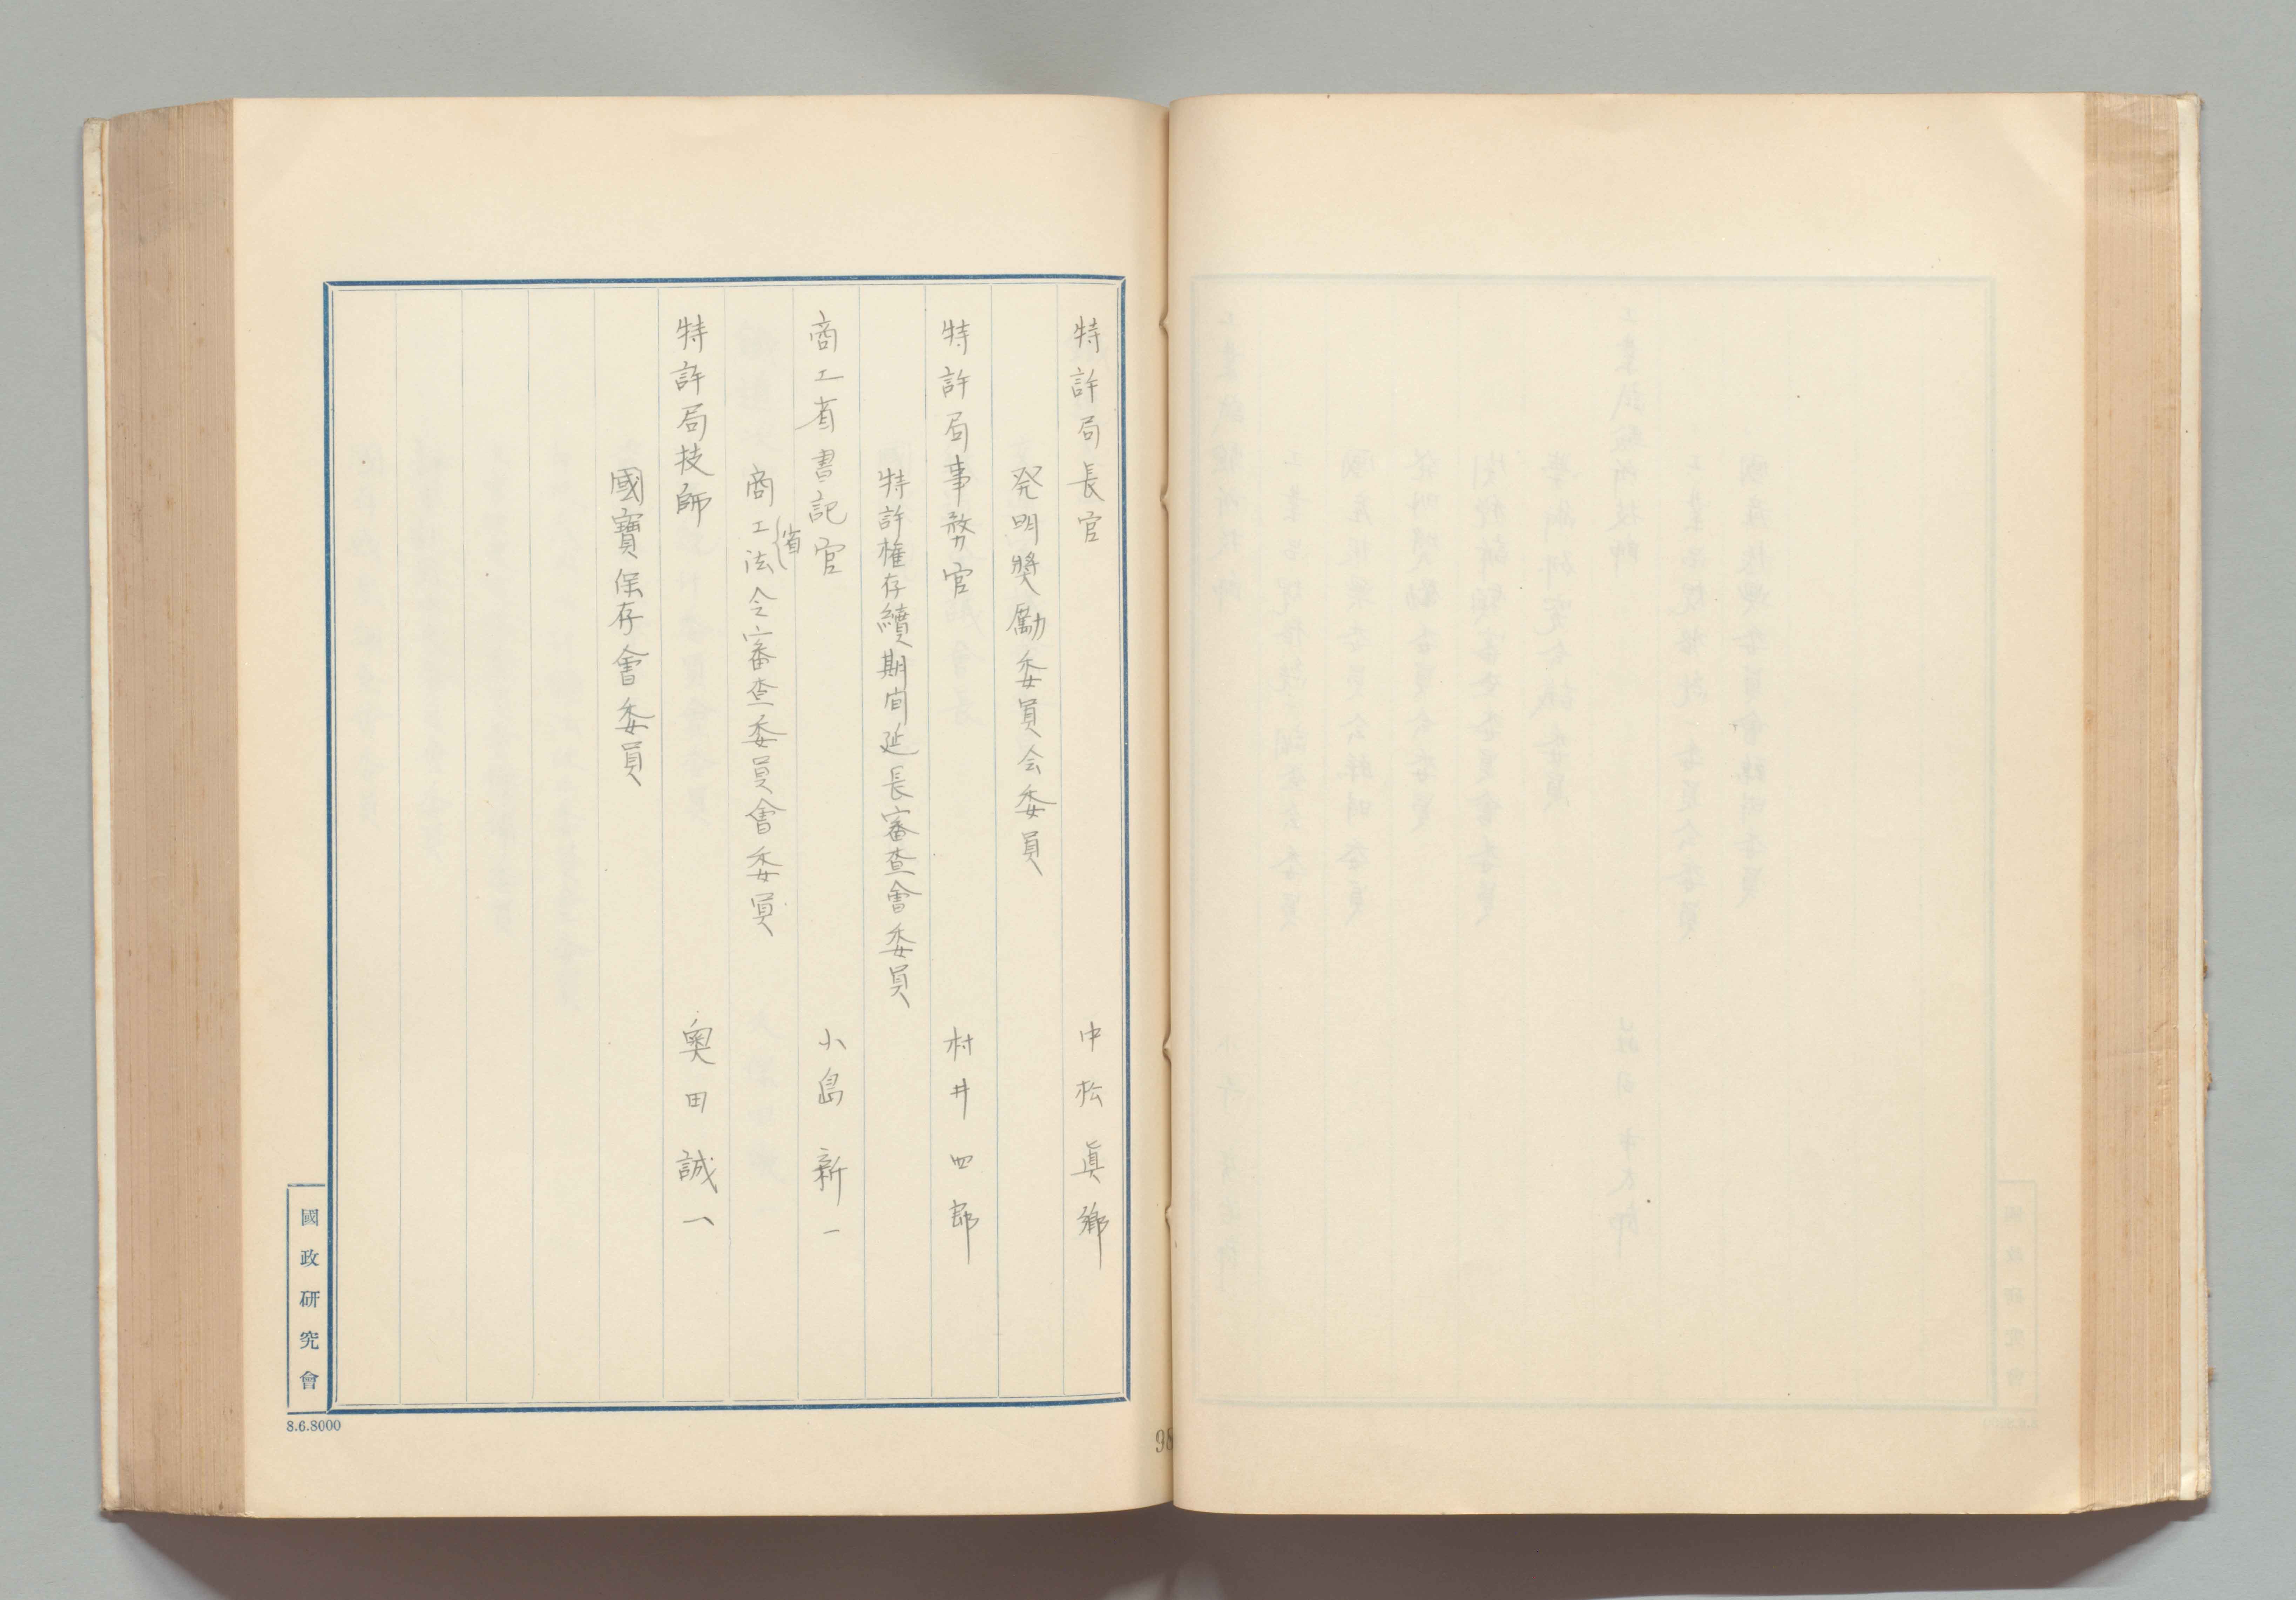 特許局長官 中松眞郷
発明奬勵委員会委員
特許局事務官 村井四郎
特許権存續期間延長審査會委員
商工省書記官 小島新一
商工省法令審査委員會委員
特許局技師 奥田誠一
國寶保存會委員
國政研究會
8.6.8000
98